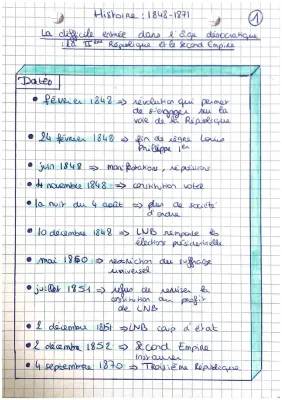 Histoire : 1848-1871
1
La difficile entrée dans l'âge démocratique
la IIème République et le Second Empire
Dates
• février 1848 => révolution qui permet
de s'engager sur la
voie de la République
• 24 février 1848 => fin de règne Louis
Philippe 1er
• juin 1848 => manifestations, répression
• 4 novembre 1848 => constitution votée
• la nuit du 4 août => plus de société
d'ordre
• 10 décembre 1848 => LNB remporte les
élections présidentielles
• mai 1850 => restriction du suffrage
universel
• juillet 1851 => refus de réviser la
constitution au profit
de LNB
• 2 décembre 1851 => LNB coup d'état
• 2 décembre 1852 => Second Empire
instauré
• 4 septembre 1870 => Troisième République